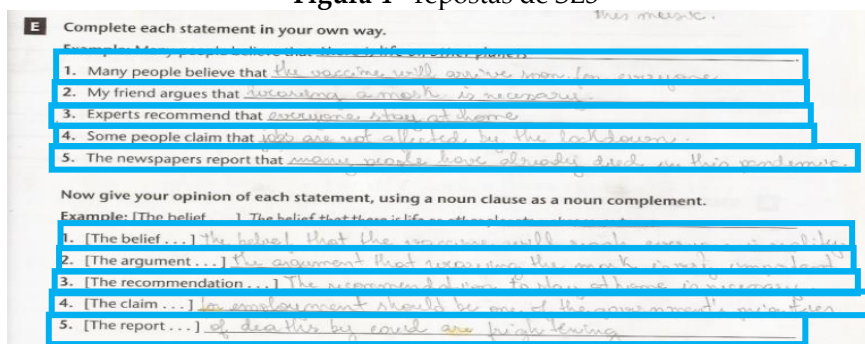 Figura 1 - repostas de SLS
this music.
E Complete each statement in your own way.
Example: Many people believe that there is life on other planets
1. Many people believe that the vaccine will arrive soon for everyone
2. My friend argues that wearing a mask is necessary.
3. Experts recommend that everyone stay at home
4. Some people claim that jobs are not affected by the lockdown.
5. The newspapers report that many people have already died in this pandemic.
Now give your opinion of each statement, using a noun clause as a noun complement.
Example: [The belief . . . ] The belief that there is life on other planets
1. [The belief . . . ] The belief that the vaccine will reach everyone is
2. [The argument . . . ] the argument that wearing the mask is very important
3. [The recommendation . . . ] The recommendation to stay at home is necessary
4. [The claim . . . ] for employment should be one of the government's priorities
5. [The report . . . ] of deaths by covid are frightening